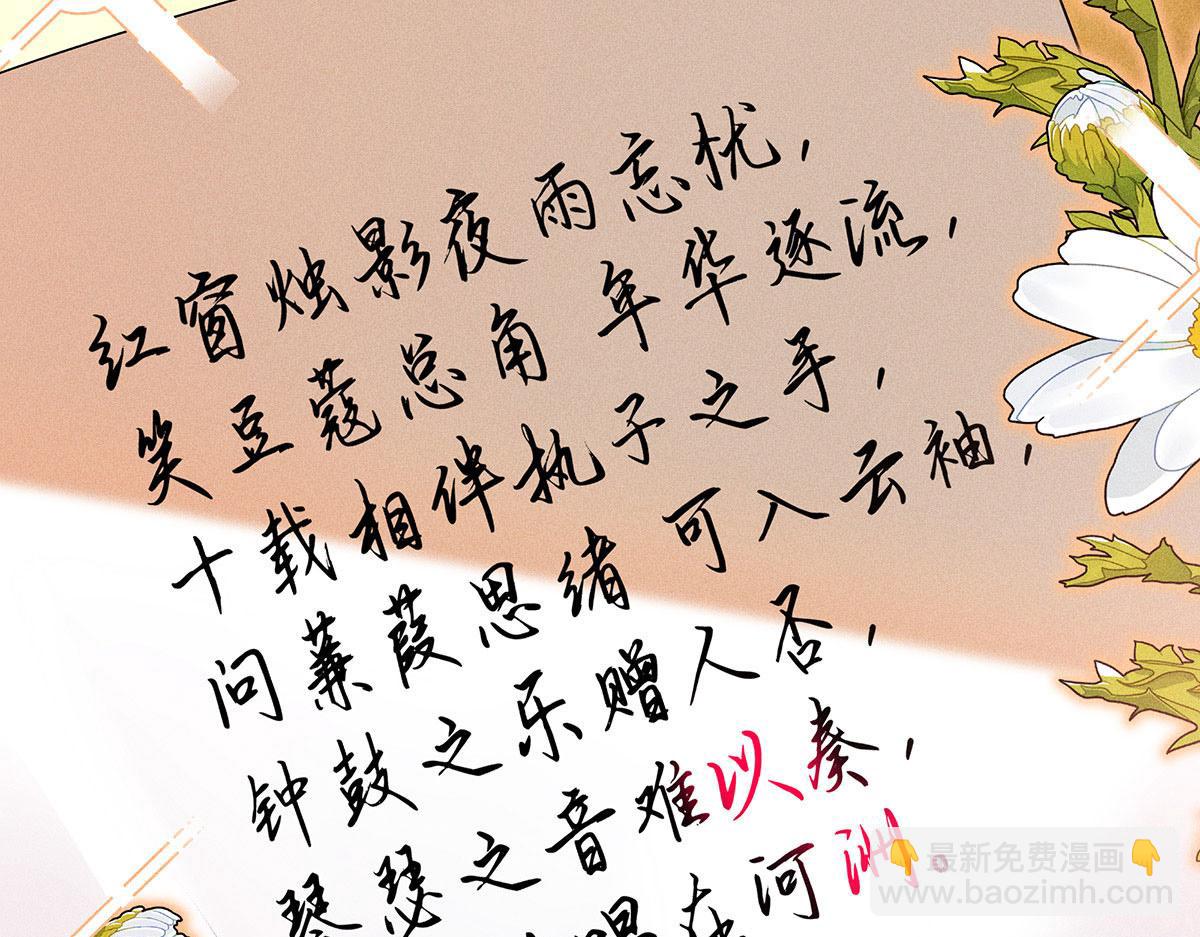 红窗烛影夜雨忘忧，
笑豆蔻总角年华逐流，
十载相伴执子之手，
问蒹葭思绪可入云袖，
钟鼓之乐赠人否，
琴瑟之音难以奏，
在河洲。
👇最新免费漫画👇
www.baozimh.com